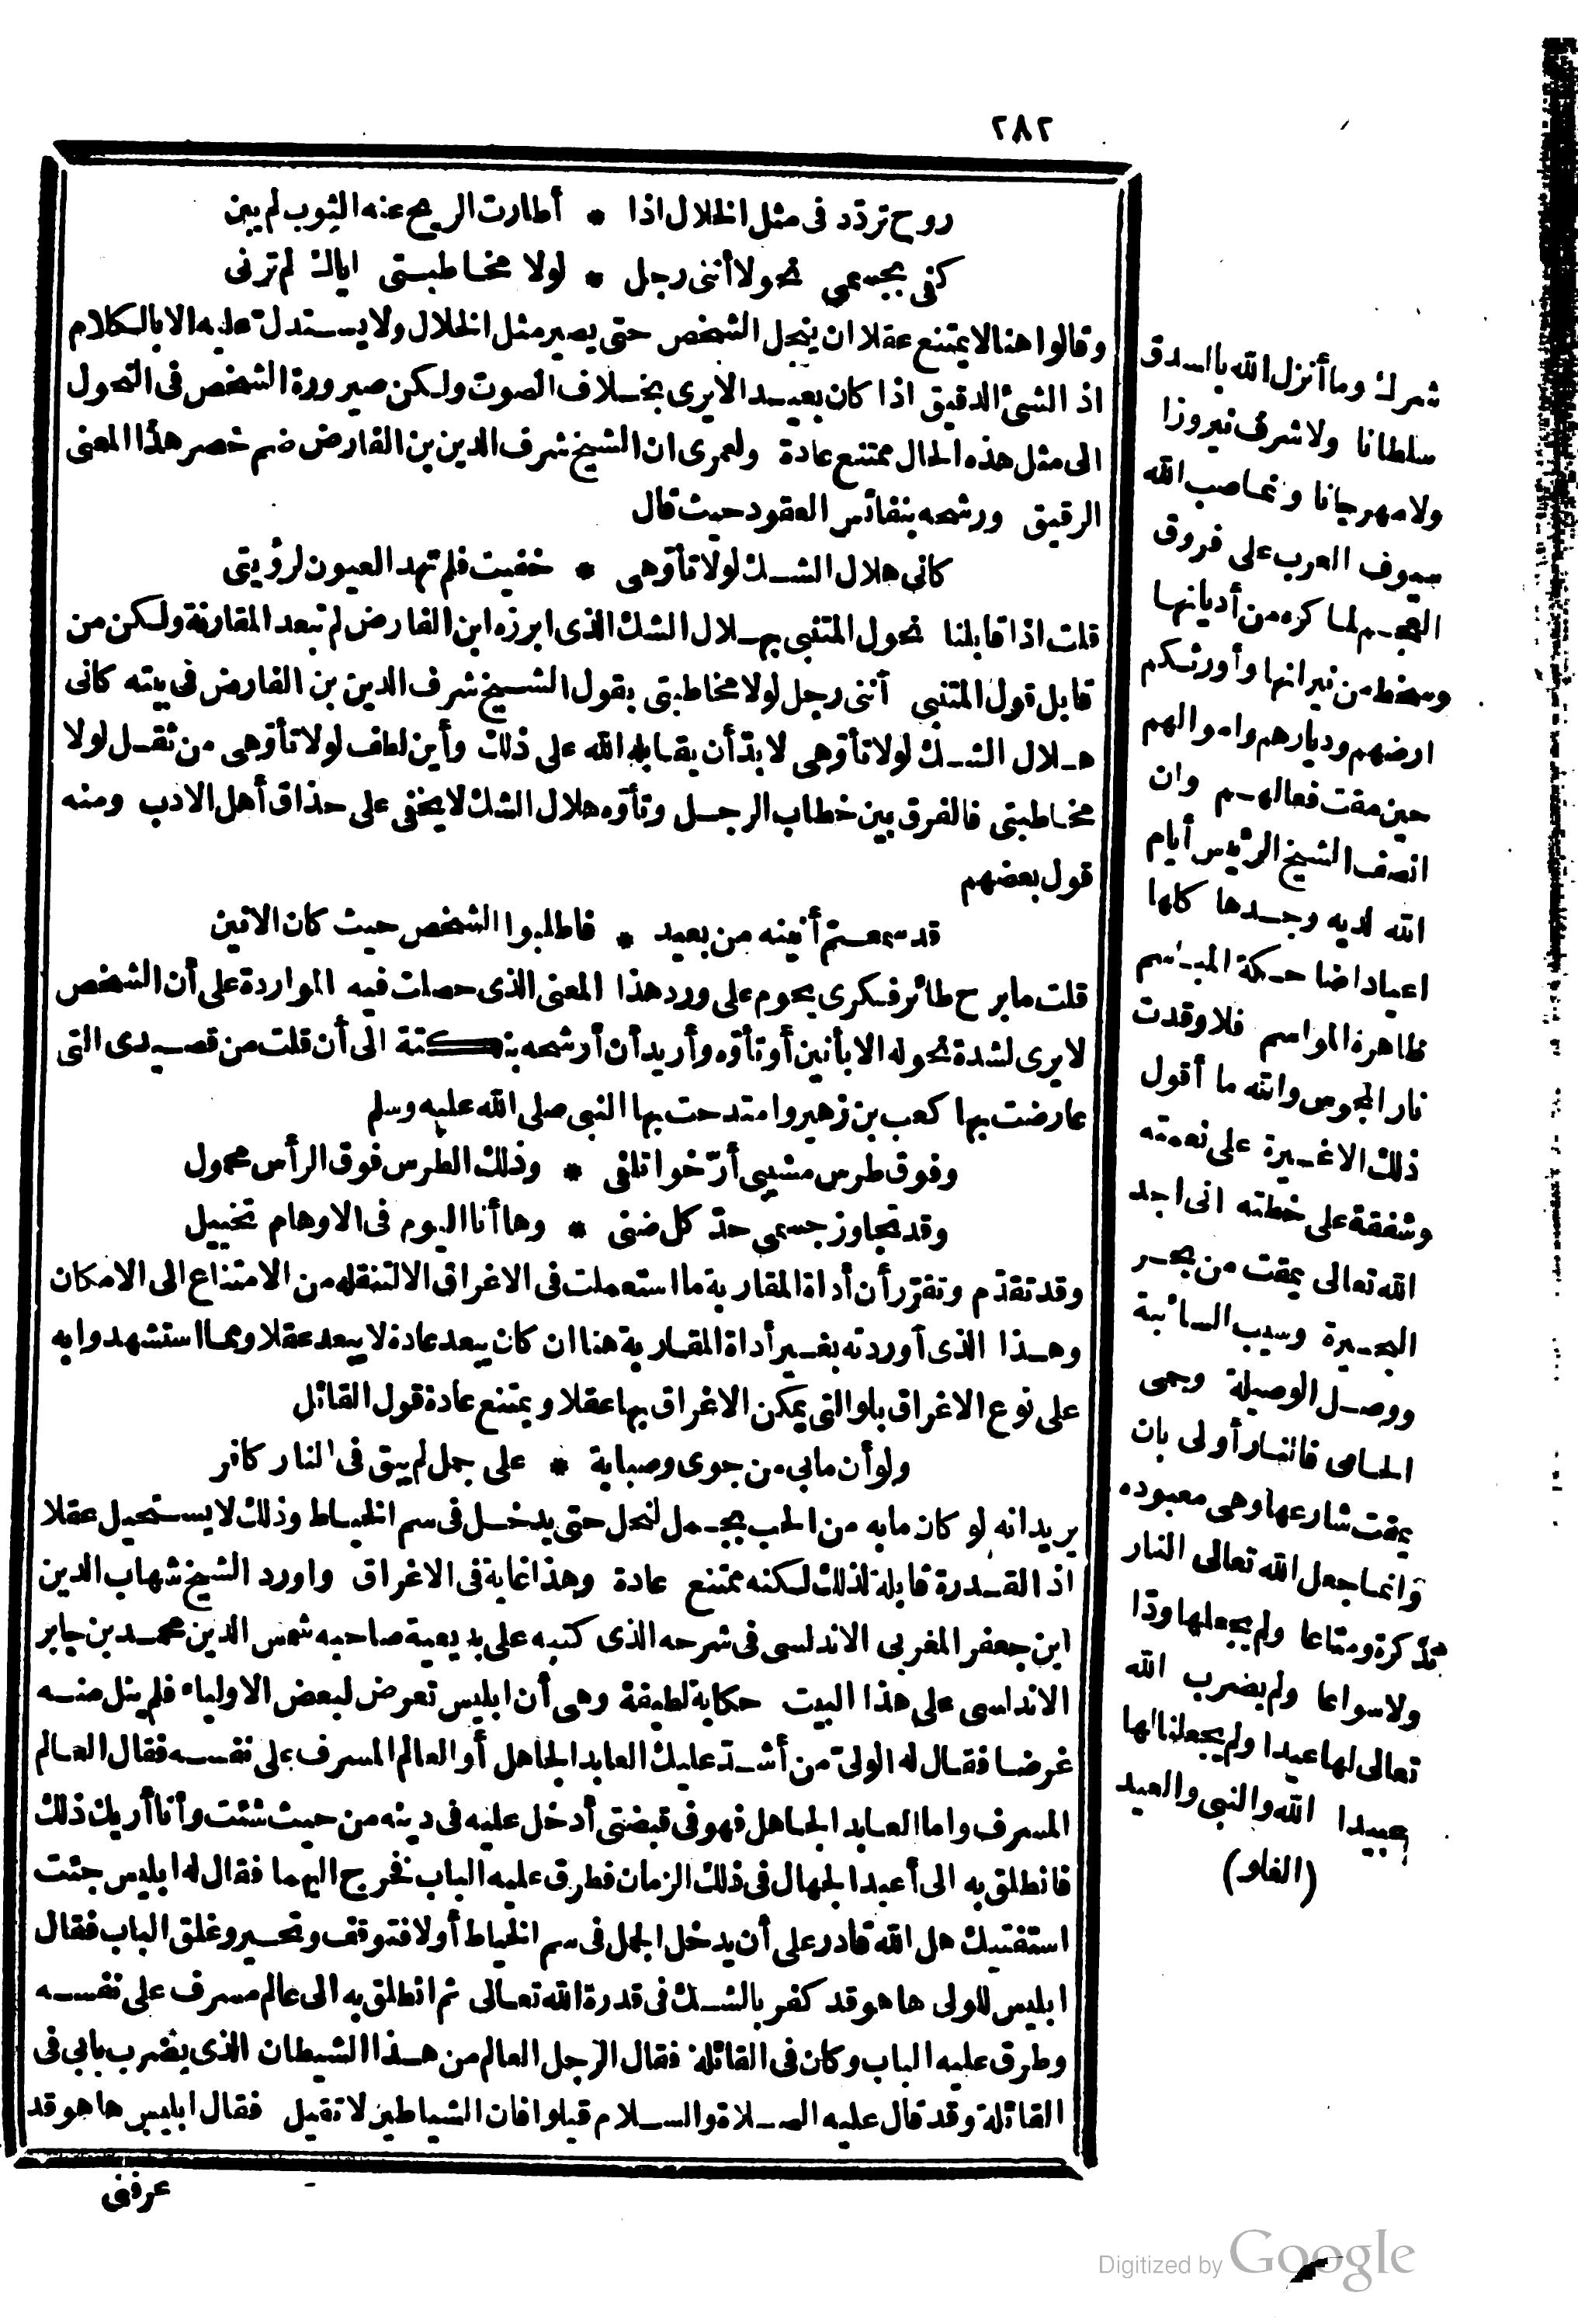 ٢٨٢
روح تردّد فى مثل الخلال اذا * أطارت الريح عنه الثوب لم يبن
كفى بجسمى نحولا أننى رجل * لولا مخاطبتى اياك لم ترنى
وقالوا هنا لا يمتنع عقلا ان ينحل الشخص حتى يصير مثل الخلال ولا يستدلّ عليه الا بالكلام
اذ الشئ الدقيق اذا كان بعيدا لا يرى بخلاف الصوت ولكن صيرورة الشخص فى النحول
الى مثل هذه الحال ممتنع عادة ولعمرى ان الشيخ شرف الدين بن الفارض ضم خصر هذا المعنى
الرقيق ورشحه بنفائس العقود حيث قال
كانى هلال الشك لولا تأوّهى * خفيت فلم تهد العيون لرؤيتى
قلت اذا قابلنا نحول المتنبى بهلال الشك الذى ابرزه ابن الفارض لم تبعد المقارنة ولكن من
قابل قول المتنبى أننى رجل لولا مخاطبتى بقول الشيخ شرف الدين بن الفارض فى بيته كانى
هلال الشك لولا تأوّهى لا بدّ أن يقابله الله على ذلك وأين لطف لولا تأوّهى من ثقل لولا
مخاطبتى فالفرق بين خطاب الرجل وتأوّه هلال الشك لا يخفى على حذاق أهل الادب ومنه
قول بعضهم
قد سمعتم أنينه من بعيد * فاطلبوا الشخص حيث كان الانين
قلت ما برح طائر فكرى يحوم على ورد هذا المعنى الذى حصلت فيه المواردة على أن الشخص
لا يرى لشدة نحوله الا بأنين أو تأوّه وأريد أن أرشحه بنكتة الى أن قلت من قصيدى التى
عارضت بها كعب بن زهير وامتدحت بها النبى صلى الله عليه وسلم
وفوق طرس مشيبى أرّخوا تلفى * وذلك الطرس فوق الرأس محمول
وقد تجاوز جسمى حدّ كل ضنى * وها أنا اليوم فى الاوهام تخييل
وقد تقدّم وتقرّر أن أداة المقاربة ما استعملت فى الاغراق الا لتنقله من الامتناع الى الامكان
وهذا الذى آوردته بغير أداة المقاربة هنا ان كان يبعد عادة لا يبعد عقلا ومما استشهدوا به
على نوع الاغراق بلو التى يمكن الاغراق بها عقلا ويمتنع عادة قول القائل
ولو أن ما بى من جوى وصبابة * على جمل لم يبق فى النار كافر
يريد انه لو كان ما به من الحب بجمل لنحل حتى يدخل فى سم الخياط وذلك لا يستحيل عقلا
اذ القدرة قابلة لذلك لكنه ممتنع عادة وهذا غاية فى الاغراق واورد الشيخ شهاب الدين
ابن جعفر المغربى الاندلسى فى شرحه الذى كتبه على بديعية صاحبه شمس الدين محمد بن جابر
الاندلسى على هذا البيت حكاية لطيفة وهى أن ابليس تعرض لبعض الاولياء فلم ينل منه
غرضا فقال له الولىّ من أشدّ عليك العابد الجاهل أو العالم المسرف على نفسه فقال العالم
المسرف واما العابد الجاهل فهو فى قبضتى أدخل عليه فى دينه من حيث شئت وأنا أريك ذلك
فانطلق به الى أعبد الجهال فى ذلك الزمان فطرق عليه الباب فخرج اليهما فقال له ابليس جئت
استفتيك هل الله قادر على أن يدخل الجمل فى سم الخياط أو لا فتوقف وتحير وغلق الباب فقال
ابليس للولى ها هو قد كفر بالشك فى قدرة الله تعالى ثم انطلق به الى عالم مسرف على نفسه
وطرق عليه الباب وكان فى القائلة فقال الرجل العالم من هذا الشيطان الذى يضرب بابى فى
القائلة وقد قال عليه الصلاة والسلام قيلوا فان الشياطين لا تقيل فقال ابليس ها هو قد
عرفنى
شرك وما أنزل الله بالسدق
سلطانا ولا شرف نيروزا
ولا مهرجانا وانما صب الله
سيوف العرب على فروق
العجم لما كره من أديانها
وسخط من نيرانها وأورثكم
ارضهم وديارهم واموالهم
حين مقت فعالهم وان
انصف الشيخ الرئيس أيام
الله لديه وجدها كلها
اعيادا ضاحكة المباسم
ظاهرة المواسم فلا وقدت
نار المجوس والله ما أقول
ذلك الا غيرة على نعمته
وشفقة على خطته انى اجد
الله تعالى يمقت من بحر
البحيرة وسيب السائبة
ووصل الوصيلة وحمى
الحامى فالنار أولى بان
يمقت شارعها وهى معبوده
وانما جعل الله تعالى النار
تذكرة ومتاعا ولم يجعلها ودّا
ولا سواعا ولم يضرب الله
تعالى لها عيدا ولم يجعلنا لها
عبيدا الله والنبى والعيد
(الفلا)
Digitized by Google